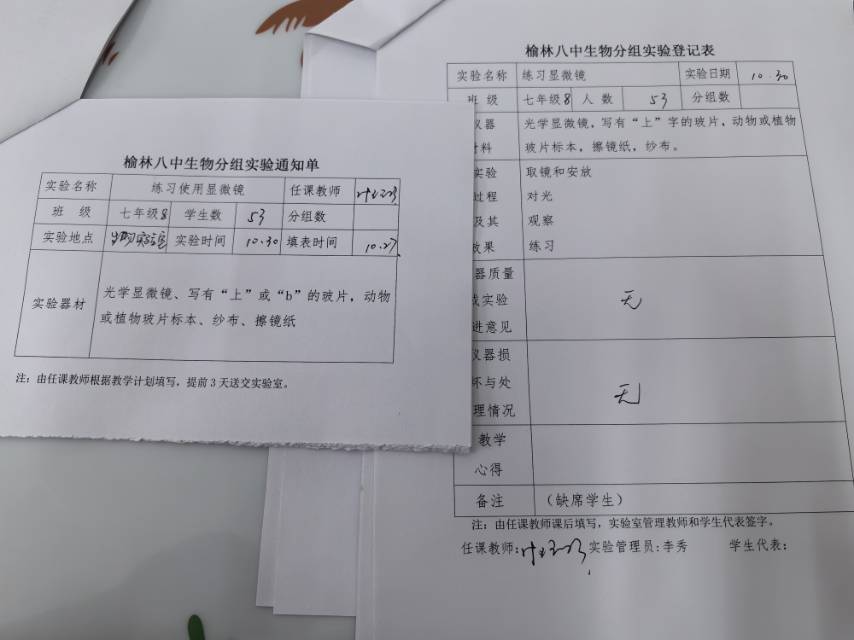 榆林八中生物分组实验通知单
实验名称 练习使用显微镜 任课教师
班 级 七年级8 学生数 53 分组数
实验地点 生物实验室 实验时间 10.30 填表时间 10.27
实验器材 光学显微镜、写有“上”或“b”的玻片，动物
或植物玻片标本、纱布、擦镜纸
注：由任课教师根据教学计划填写，提前3天送交实验室。
榆林八中生物分组实验登记表
实验名称 练习显微镜 实验日期 10.30
班 级 七年级8 人 数 53 分组数
仪器 光学显微镜，写有“上”字的玻片，动物或植物
材料 玻片标本，擦镜纸，纱布。
实验 取镜和安放
过程 对光
及其 观察
效果 练习
器质量
或实验 无
进意见
仪器损
坏与处 无
理情况
教学
心得
备注 （缺席学生）
注：由任课教师课后填写，实验室管理教师和学生代表签字。
任课教师: 实验管理员:李秀 学生代表: